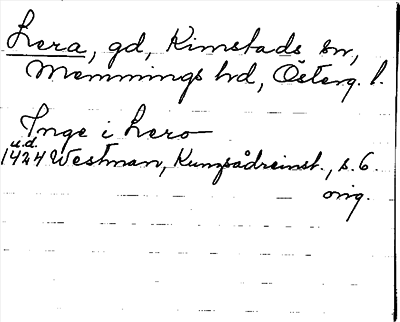 Lera, gd, Kimstads sn,
Memmings hd, Österg. l.
Inge i Lero
u.d.
1424 Westman, Kungsådreinst., s. 6.
orig.